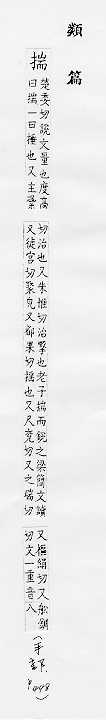 類篇
揣
楚委切說文量也度高
曰揣一曰捶也又主縈
切治也又朱惟切治擊也老子揣而銳之梁簡文讀
又徒官切聚皃又都果切搖也又尺兗切又之瑞切
又樞絹切又船釧
切文一重音八
(手部. p448)